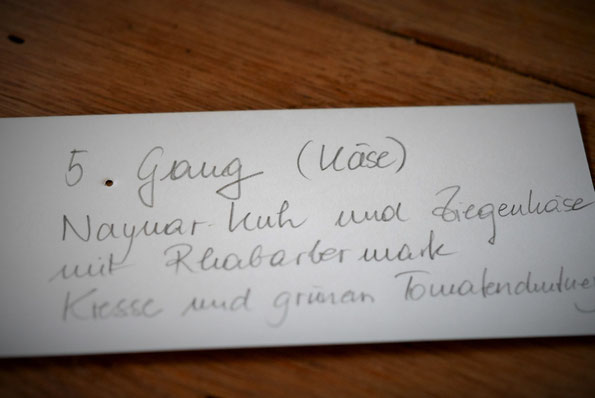 5. Gang (Käse)
Naynar-Kuh und Ziegenkäse
mit Rhabarbermark
Kresse und grünen Tomatenchutney